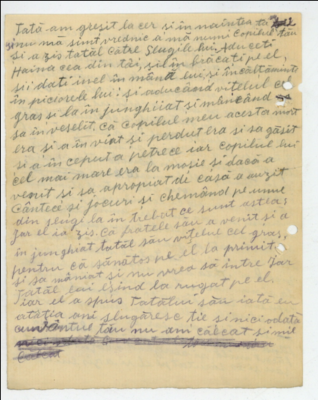 Tată am greşit la cer şi înnaintea ta
şi nu mă sînt vrednic a mă numi Copilul tău
Şi a zis tatăl Cătră Slugile lui, aduceţi
Haina cea din tăi, şi în brăcaţi pe el,
şi i daţi inel în mâna lui, şi încălţăminte
în piciorele lui: şi aducând viţelul cel
gras şi la în junghiiat şi mâncând
sa în veselit, că Copilul meu acesta mort
era şi a în viat şi perdut era şi sa găsit
şi a început a petrece iar Copilul lui
cel mai mare era la moşie şi dacă a
venit şi sa apropiat de casă a auzit
Cântece şi jocuri şi chemând pe unul
din slugi la în trebat ce sunt astea,
Iar el ia zis. Ca fratele tău a venit şi a
în junghiat tatăl său viţelul cel gras,
pentru că sănătos pe el la primit
şi sa mâniat şi nu vrea să intre Iar
tatăl lui eşind la rugat pe el.
iar el a spus tatălui său iată eu
atâţia ani slugăresc ţie şi nici odată
cuvântul tău nu am călcat şi mie